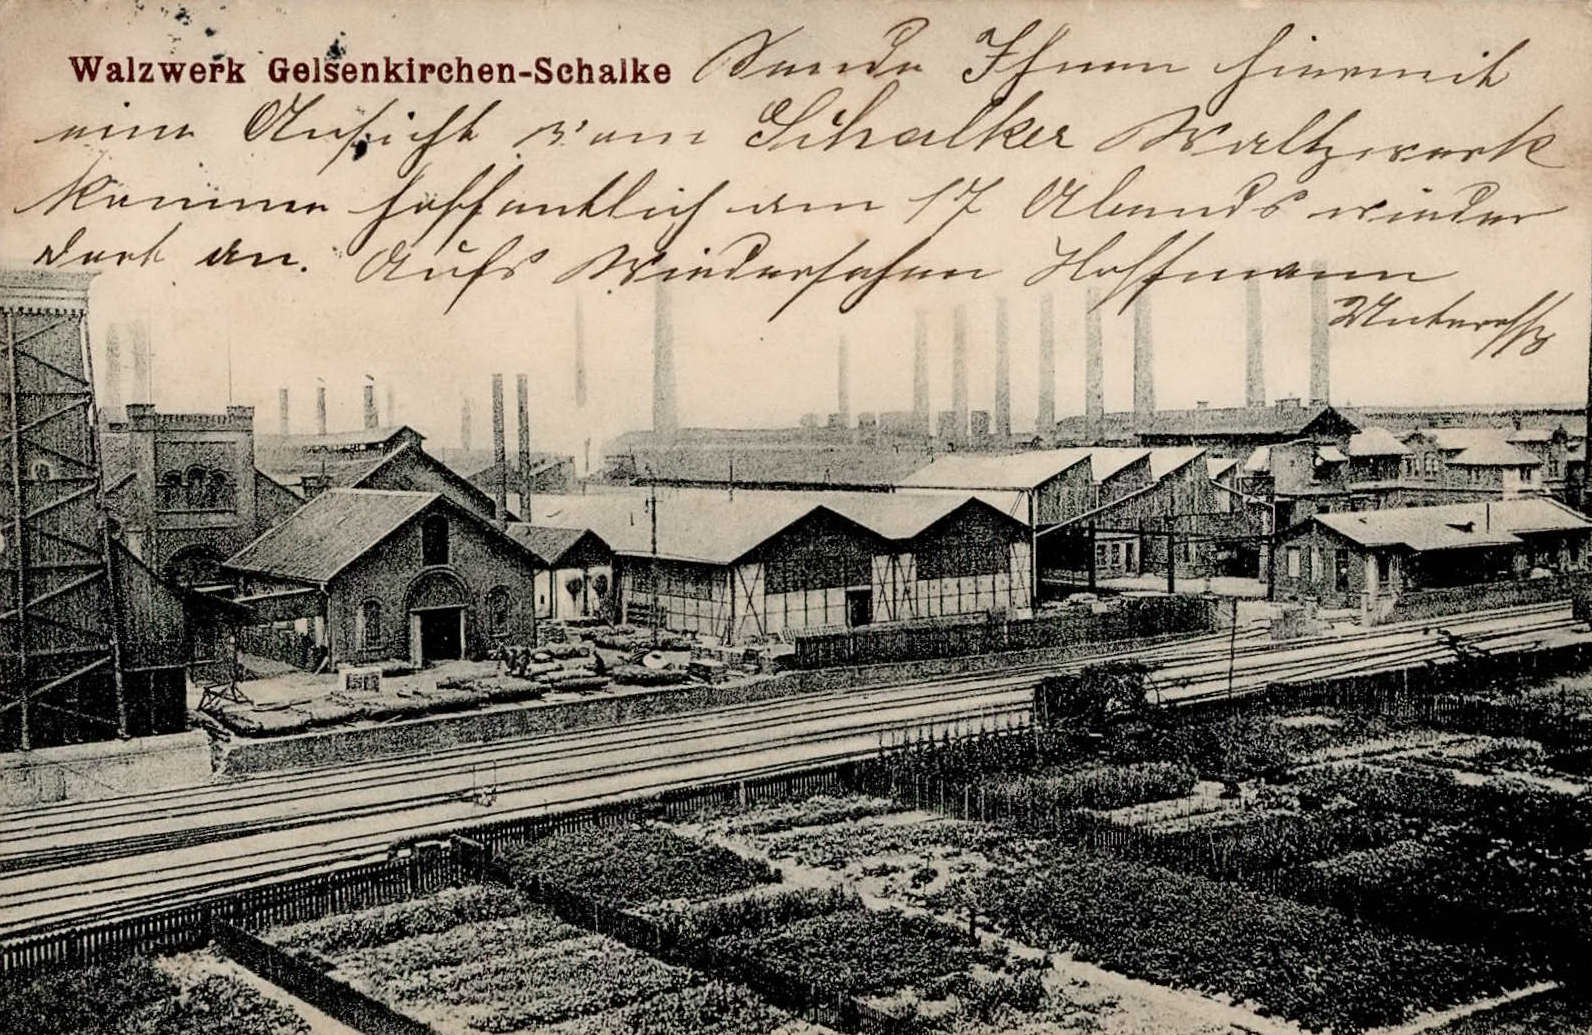 Walzwerk Gelsenkirchen-Schalke Sende Ihnen hiermit
eine Ansicht vom Schalker Waltzwerk
kommen hoffentlich am 17 Abends wieder
dort an. Aufs Wiedersehen Hoffmann
Unteroffz